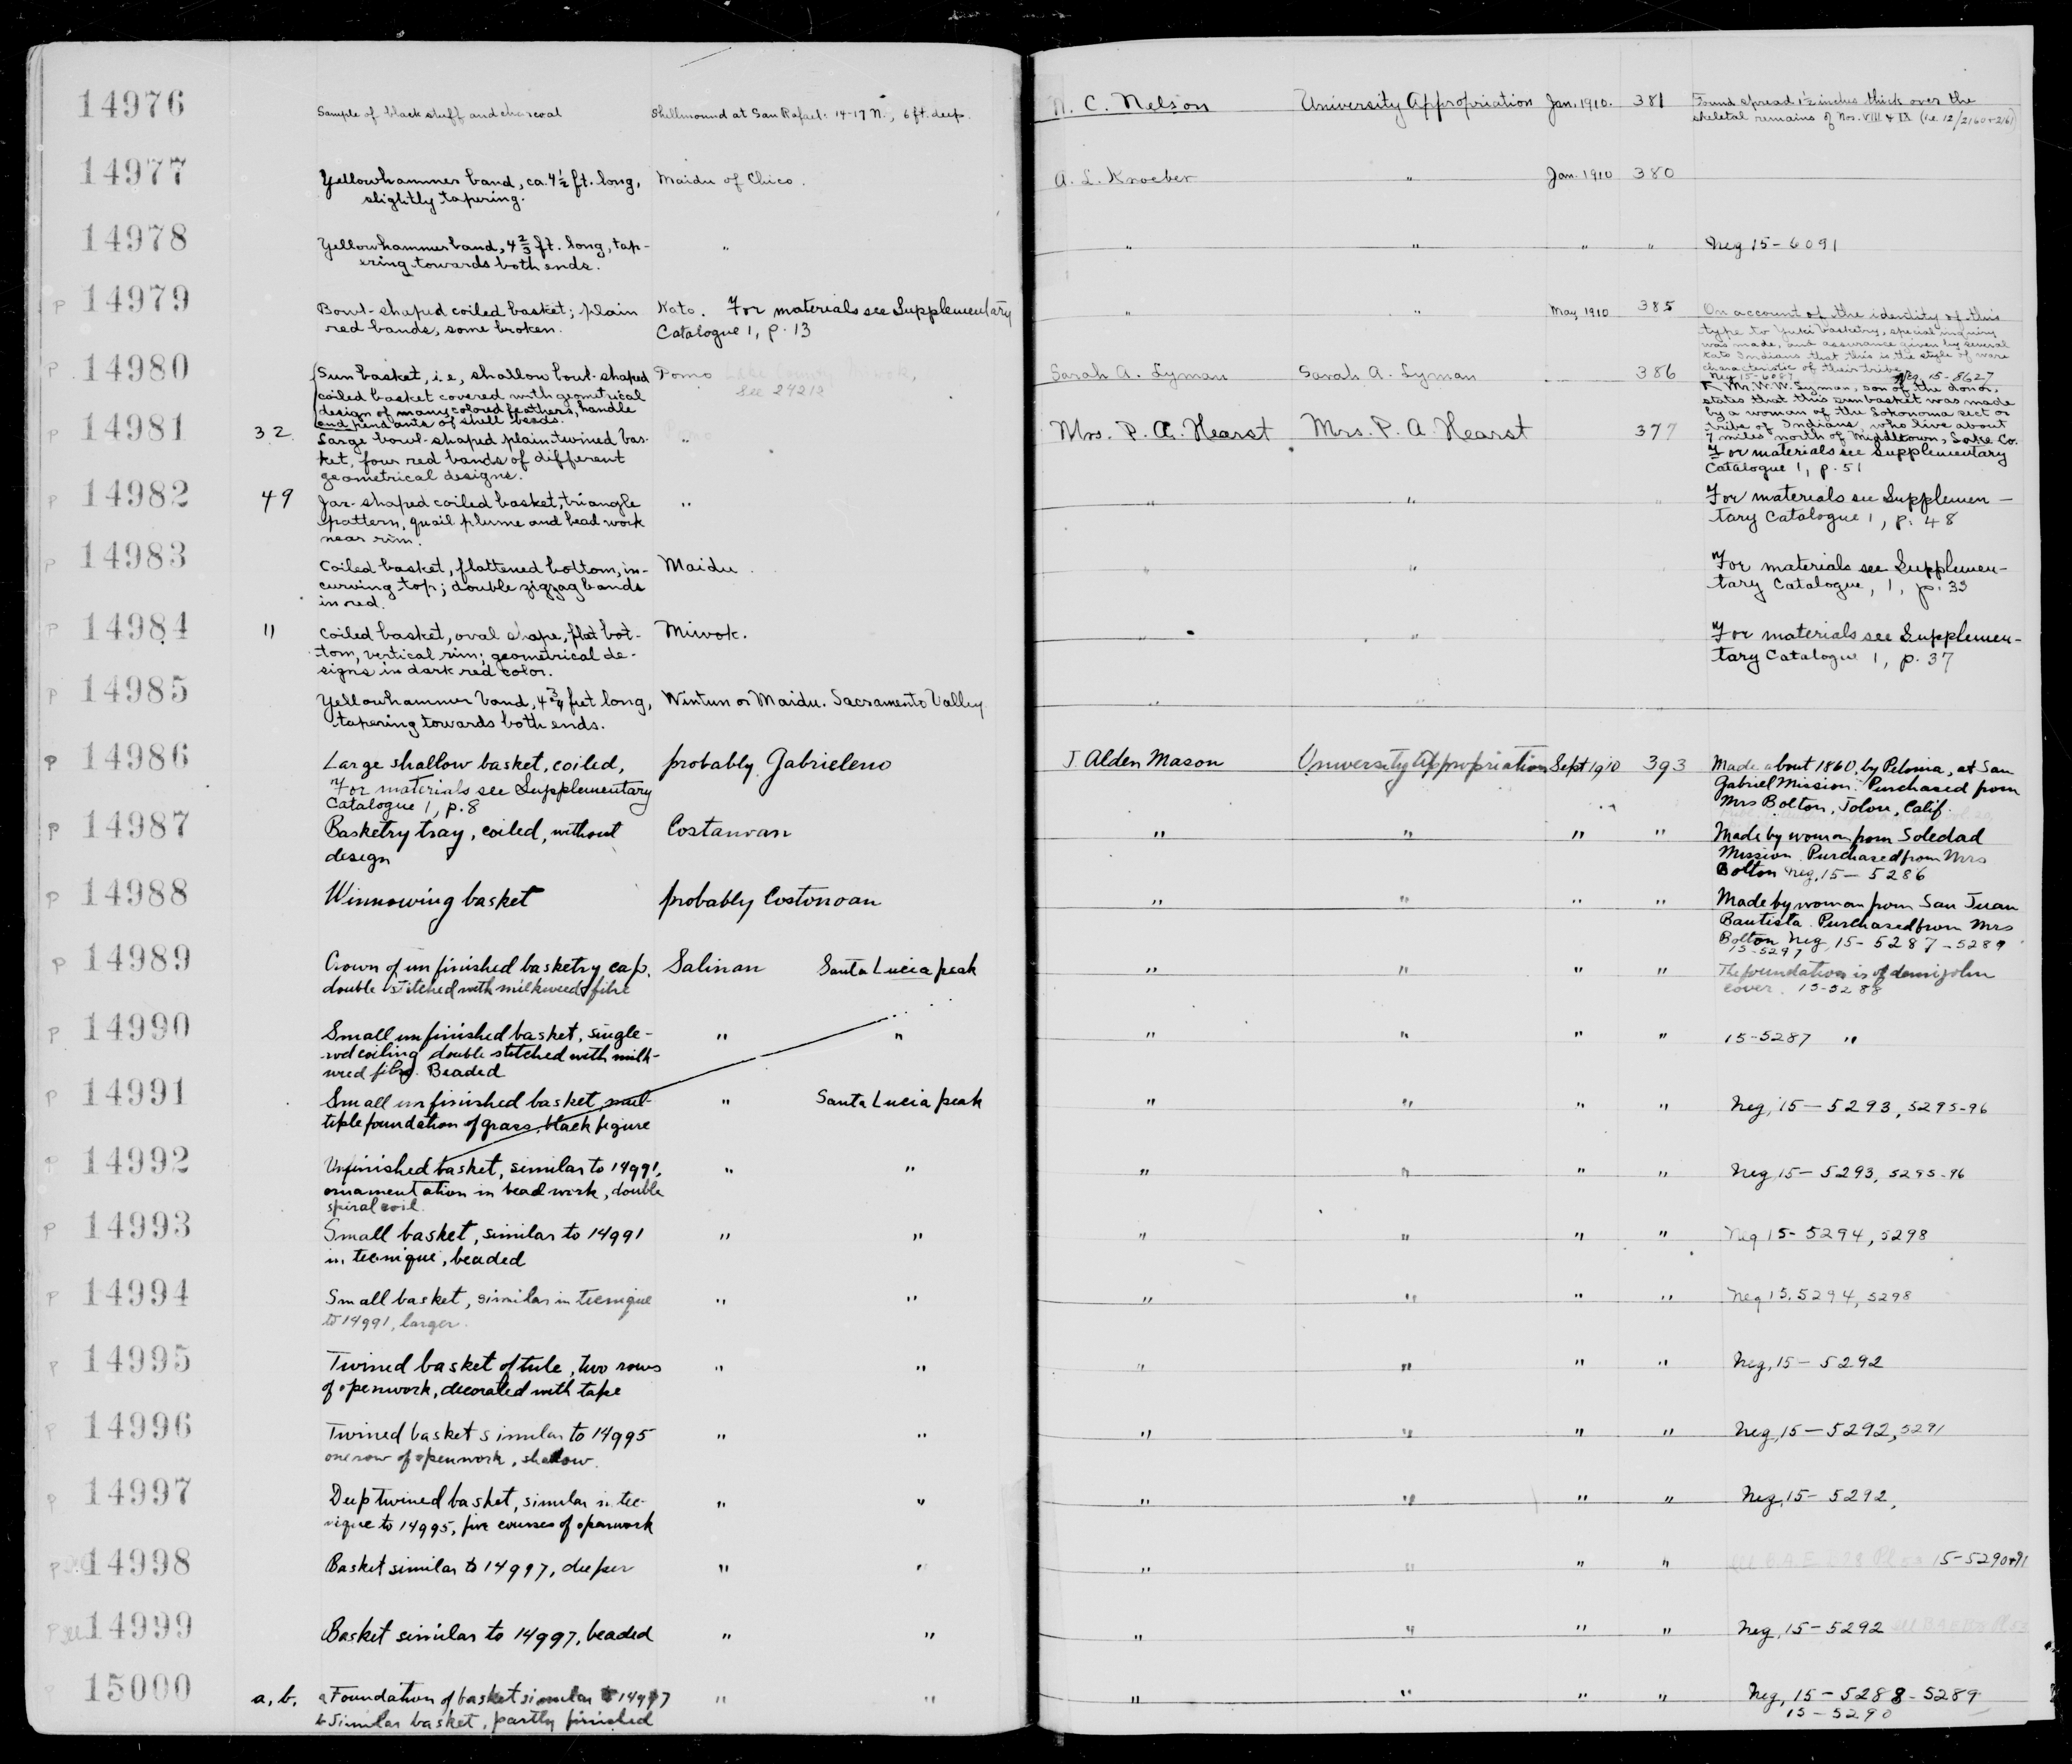 14976 Sample of black stuff and charcoal Shellmound at San Rafael: 14-17 N., 6 ft. deep. N. C. Nelson University Appropriation Jan. 1910. 381 Found spread 1½ inches thick over the
skeletal remains of Nos. VIII & IX (i.e. 12/2160+2161)
14977 Yellowhammer band, ca. 4½ ft. long, Maidu of Chico. A. L. Kroeber " Jan. 1910 380
slightly tapering.
14978 Yellowhammer band, 4⅔ ft. long, tap- " " " " " Neg 15-6091
ering towards both ends.
P 14979 Bowl-shaped coiled basket; plain Kato. For materials see Supplementary " " May 1910 385 On account of the identity of this
red bands, some broken. Catalogue 1, p. 13 type to Yuki basketry, special inquiry
was made, and assurance given by several
Kato Indians that this is the style of ware
characteristic of their tribe.
Neg 15-6087
P 14980 Sun basket, i.e., shallow bowl-shaped Pomo Lake County Miwok, Sarah A. Lyman Sarah A. Lyman 386 Neg. 15-8627
coiled basket covered with geometrical See 24212 Mr. W. W. Lyman, son of the donor,
design of many colored feathers, handle states that this sun basket was made
and pendants of shell beads. by a woman of the Sokonoma sect or
tribe of Indians, who live about
7 miles north of Middletown, Lake Co.
For materials see Supplementary
Catalogue 1, p. 51
P 14981 32 Large bowl-shaped plain-twined bas- " Mrs. P. A. Hearst Mrs. P. A. Hearst 377
ket, four red bands of different
geometrical designs.
P 14982 49 Jar-shaped coiled basket, triangle " " " " For materials see Supplemen-
pattern, quail plume and bead work tary Catalogue 1, p. 48
near rim.
P 14983 Coiled basket, flattened bottom, in- Maidu. " " " For materials see Supplemen-
curving top; double zigzag bands tary Catalogue, 1, p. 33
in red.
P 14984 11 Coiled basket, oval shape, flat bot- Miwok. " " " For materials see Supplemen-
tom, vertical rim; geometrical de- tary Catalogue 1, p. 37
signs in dark red color.
P 14985 Yellowhammer band, 4¾ feet long, Wintun or Maidu. Sacramento Valley " "
tapering towards both ends.
P 14986 Large shallow basket, coiled, probably Gabrieleno J Alden Mason University Appropriation Sept 1910 393 Made about 1860, by Peloma, at San
For materials see Supplementary Gabriel Mission. Purchased from
Catalogue 1, p. 8 Mrs Bolton, Jolon, Calif.
P 14987 Basketry tray, coiled, without Costanoan " " " " Made by woman from Soledad
design Mission. Purchased from Mrs
Bolton Neg, 15-5286
P 14988 Winnowing basket probably Costonoan " " " " Made by woman from San Juan
Bautista. Purchased from Mrs
Bolton Neg, 15-5287-5289
15-5297
P 14989 Crown of unfinished basketry cap, Salinan Santa Lucia peak " " " " The foundation is of demijohn
double stitched with milkweed fibre cover. 15-5288
P 14990 Small unfinished basket, single- " " " " " " 15-5287 "
rod coiling double stitched with milk-
weed fibre. Beaded
P 14991 Small unfinished basket, mul- " Santa Lucia peak " " " " Neg, 15-5293, 5295-96
tiple foundation of grass, black figure
P 14992 Unfinished basket, similar to 14991, " " " " " " Neg, 15-5293, 5295-96
ornamentation in bead work, double
spiral coil.
P 14993 Small basket, similar to 14991 " " " " " " Neg 15-5294, 5298
in tecnique, beaded
P 14994 Small basket, similar in tecnique " " " " " " Neg 15.5294, 5298
to 14991, larger.
P 14995 Twined basket of tule, two rows " " " " " " Neg, 15-5292
of openwork, decorated with tape
P 14996 Twined basket similar to 14995 " " " " " " Neg, 15-5292, 5291
one row of openwork, shallow.
P 14997 Deep twined basket, similar in tec- " " " " " " Neg, 15-5292,
nique to 14995, five courses of openwork
P 14998 Basket similar to 14997, deeper " " " " " " 15-5290+91
P 14999 Basket similar to 14997, beaded " " " " " " Neg, 15-5292
P 15000 a, b. a Foundation of basket similar to 14997 " " " " " " Neg, 15-5288-5289
b Similar basket, partly finished 15-5290